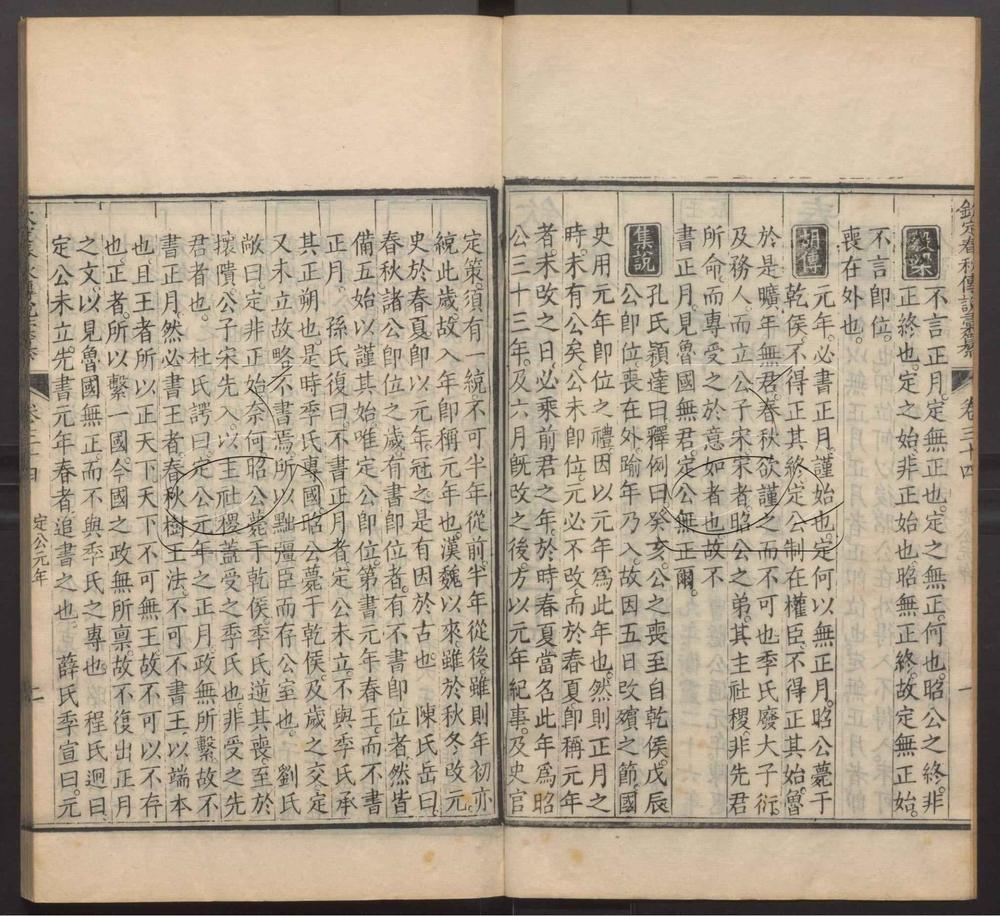 欽定春秋傳說彙纂 卷三十四 一
穀梁 不言正月。定無正也。定之無正。何也。昭公之終。非
正終也。定之始。非正始也。昭無正終。故定無正始。
不言即位。
喪在外也。
胡傳 元年。必書正月。謹始也。定何以無正月。昭公薨于
乾侯。不得正其終。定公制在權臣。不得正其始。魯
於是曠年無君。春秋欲謹之而不可也。季氏廢大子衍。
及務人。而立公子宋。宋者。昭公之弟。其主社稷。非先君
所命。而專受之於意如者也。故不
書正月。見魯國無君。定公無正爾。
集說 孔氏穎達曰。釋例曰。癸亥。公之喪至自乾侯。戊辰
公即位。喪在外。踰年乃入。故因五日改殯之節。國
史用元年即位之禮。因以元年為此年也。然則正月之
時。未有公矣。公未即位。元必不改。而於春夏即稱元年
者。未改之日。必乘前君之年。於時春夏當名此年為昭
公三十三年。及六月既改之後。方以元年紀事。及史官
定策。須有一統。不可半年從前。半年從後。雖則年初。亦
統此歲。故入年即稱元年也。漢魏以來。雖於秋冬改元。
史於春夏即以元年冠之。是有因於古也。 陳氏岳曰。
春秋諸公即位之歲。有書即位者。有不書即位者。然皆
備五始以謹其始。唯定公即位。第書元年春王。而不書
正月。 孫氏復曰。不書正月者。定公未立。不與季氏承
其正朔也。是時季氏專國。昭公薨于乾侯。及歲之交。定
又未立。故略不書焉。所以黜彊臣而存公室也。 劉氏
敞曰。定非正始奈何。昭公薨于乾侯。季氏逆其喪。至於
壞隤。公子宋先入。以主社稷。蓋受之季氏也。非受之先
君者也。 杜氏諤曰。定公元年之正月。政無所繫。故不
書正月。然必書王者。春秋樹王法。不可不書王。以端本
也。且王者所以正天下。天下不可無王。故不可以不存
也。正者。所以繫一國。今國之政無所稟。故不復出正月
之文。以見魯國無正。而不與季氏之專也。 程氏迥曰。
定公未立。先書元年春者。追書之也。 薛氏季宣曰。元
卷三十四 定公元年 二